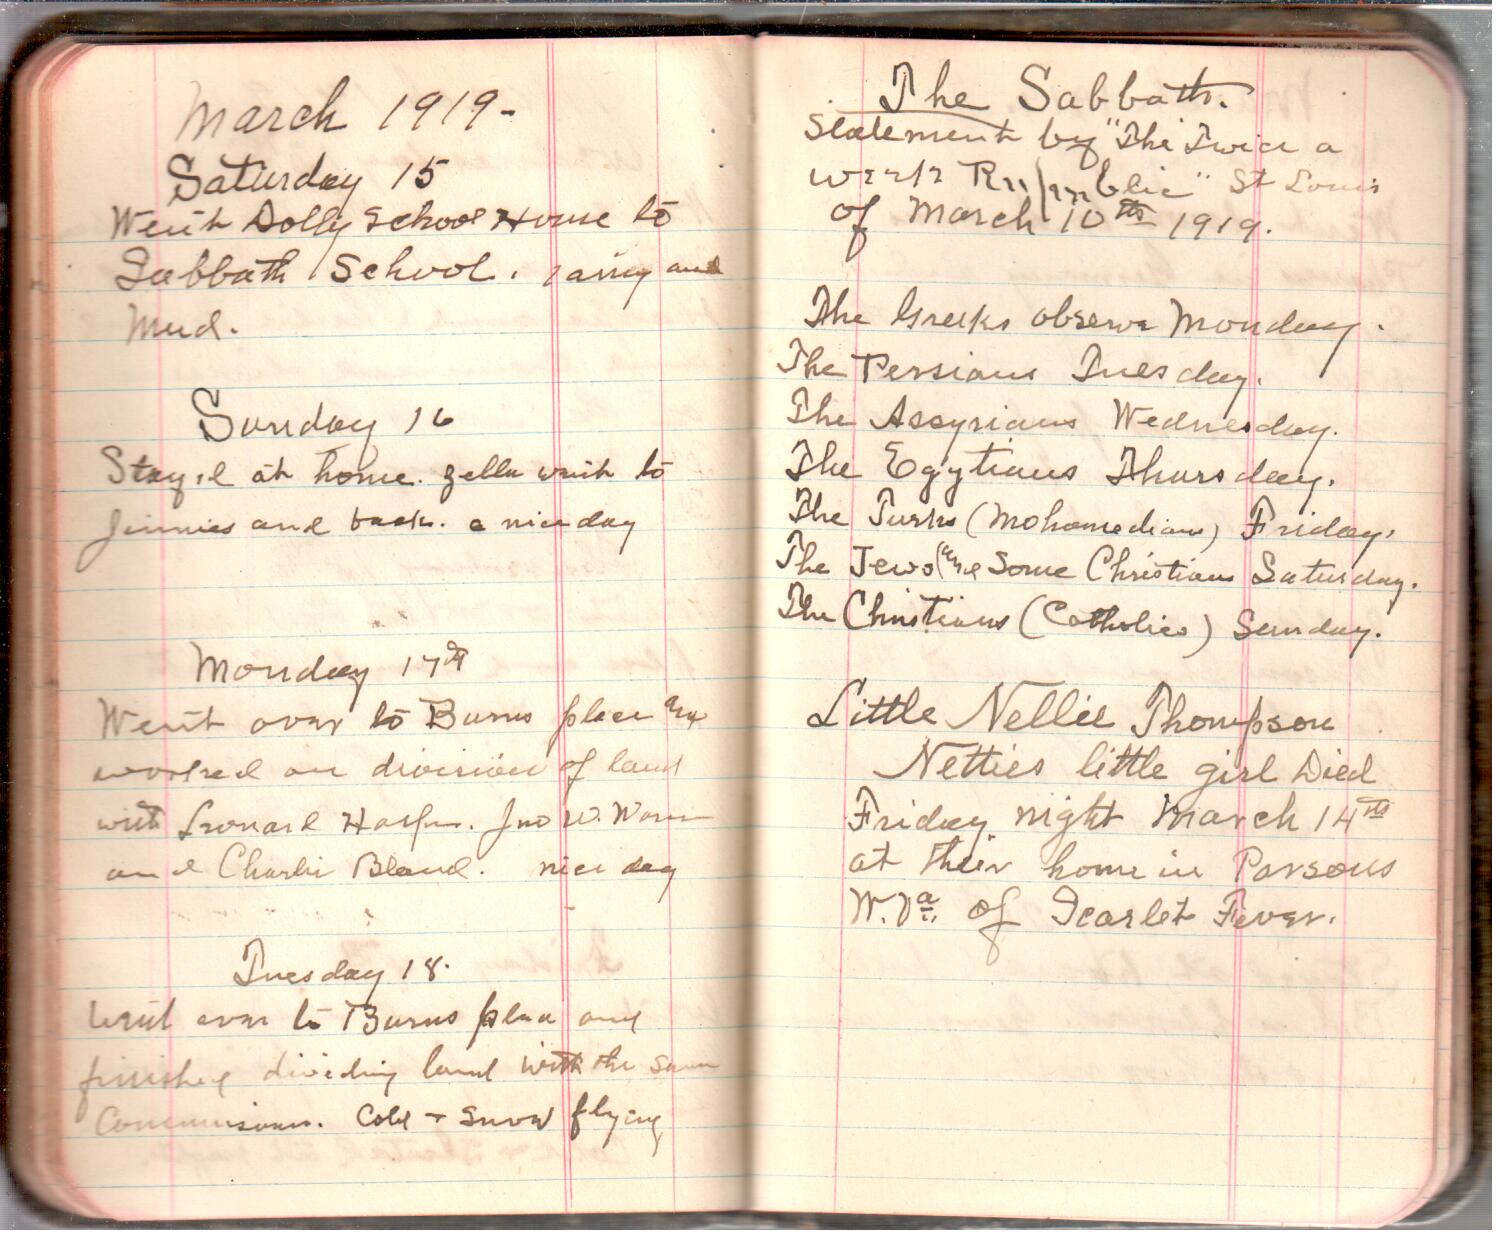 March 1919-
Saturday 15
Went Dolly School House to
Sabbath School. rainy and
Mud.
Sunday 16
Stayed at home. Zella went to
Jinnies and back. a nice day
Monday 17th
Went over to Burns place and
worked on division of land
with Leonard Jno W.
and Charlie Bland. nice day
Tuesday 18.
Went over to Burns place and
finished dividing land with the same
Cold + Snow flying
The Sabbath.
Statement by "The Twice a
week Republic" St Louis
of March 10th 1919.
The Greeks observe Monday.
The Persians Tuesday.
The Assyrians Wednesday.
The Egytians Thursday.
The Turks (Mohomedians) Friday.
The Jews (and Some Christians Saturday.
The Christians (Catholics) Sunday.
Little Nellie Thompson
Netties little girl Died
Friday night March 14th
at their home in Parsons
W. Va. of Scarlet Fever.